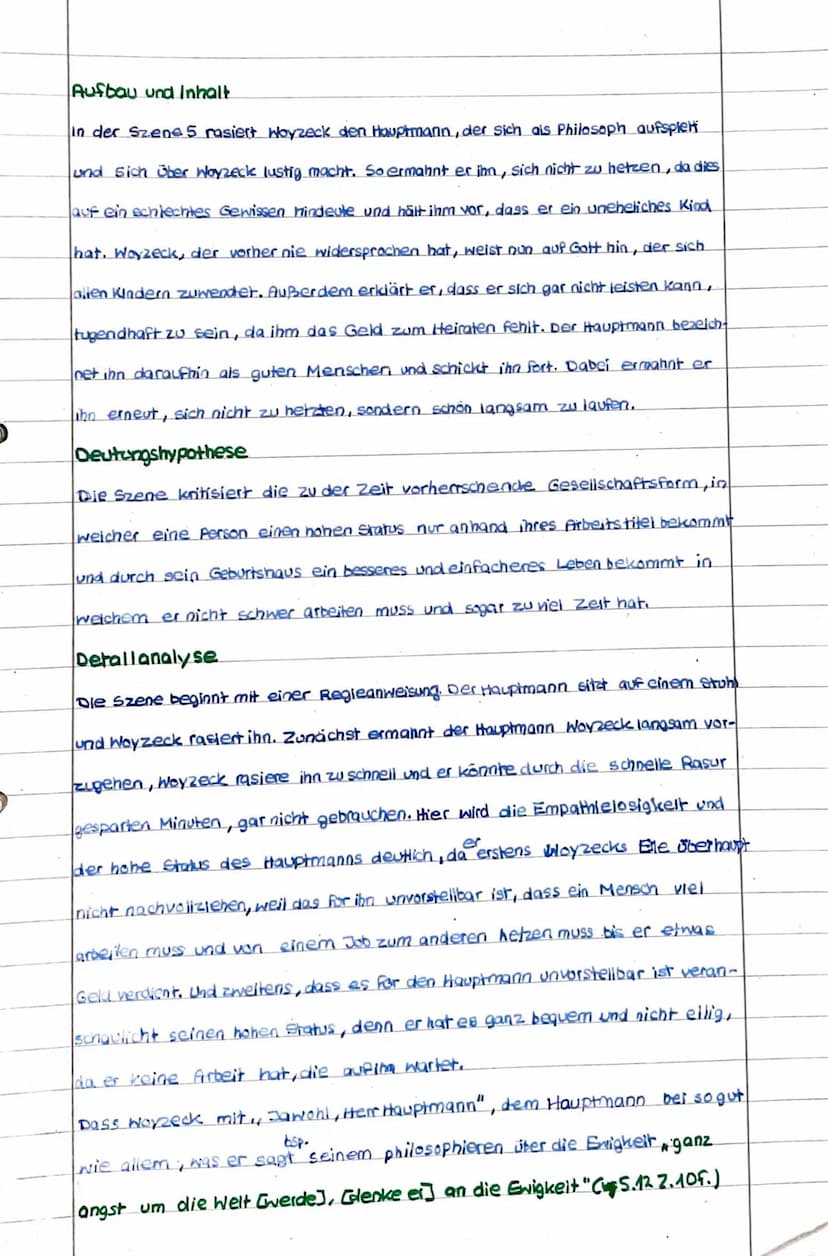 Aufbau und Inhalt
In der Szene 5 rasiert Woyzeck den Hauptmann, der sich als Philosoph aufspielt
und sich über Woyzeck lustig macht. So ermahnt er ihn, sich nicht zu hetzen, da dies
auf ein schlechtes Gewissen hindeute und hält ihm vor, dass er ein uneheliches Kind
hat. Woyzeck, der vorher nie widersprochen hat, weist nun auf Gott hin, der sich
allen Kindern zuwendet. Außerdem erklärt er, dass er sich gar nicht leisten kann,
tugendhaft zu sein, da ihm das Geld zum Heiraten fehlt. Der Hauptmann bezeich-
net ihn daraufhin als guten Menschen und schickt ihn fort. Dabei ermahnt er
ihn erneut, sich nicht zu hetzten, sondern schön langsam zu laufen.
Deutungshypothese
Die Szene kritisiert die zu der Zeit vorherrschende Gesellschaftsform, in
welcher eine Person einen hohen Status nur anhand ihres Arbeitstitel bekommt
und durch sein Geburtshaus ein besseres und einfacheres Leben bekommt in
welchem er nicht schwer arbeiten muss und sogar zu viel Zeit hat.
Detailanalyse
Die Szene beginnt mit einer Regieanweisung. Der Hauptmann sitzt auf einem Stuhl
und Woyzeck rasiert ihn. Zunächst ermahnt der Hauptmann Woyzeck langsam vor-
zugehen, Woyzeck rasiere ihn zu schnell und er könnte durch die schnelle Rasur
gesparten Minuten, gar nicht gebrauchen. Hier wird die Empathielosigkeit und
der hohe Status des Hauptmanns deutlich, da er erstens Woyzecks Eile überhaupt
nicht nachvollziehen, weil das für ihn unvorstellbar ist, dass ein Mensch viel
arbeiten muss und von einem Job zum anderen hetzen muss bis er etwas
Geld verdient. Und zweitens, dass es für den Hauptmann unvorstellbar ist veran-
schaulicht seinen hohen Status, denn er hat es ganz bequem und nicht eilig,
da er keine Arbeit hat, die auf ihn wartet.
Dass Woyzeck mit „Jawohl, Herr Hauptmann", dem Hauptmann bei so gut
wie allem, was er sagt bsp. seinem philosophieren über die Ewigkeit „ganz
angst um die Welt [werde], [denke er] an die Ewigkeit" (S.12 Z.10f.)